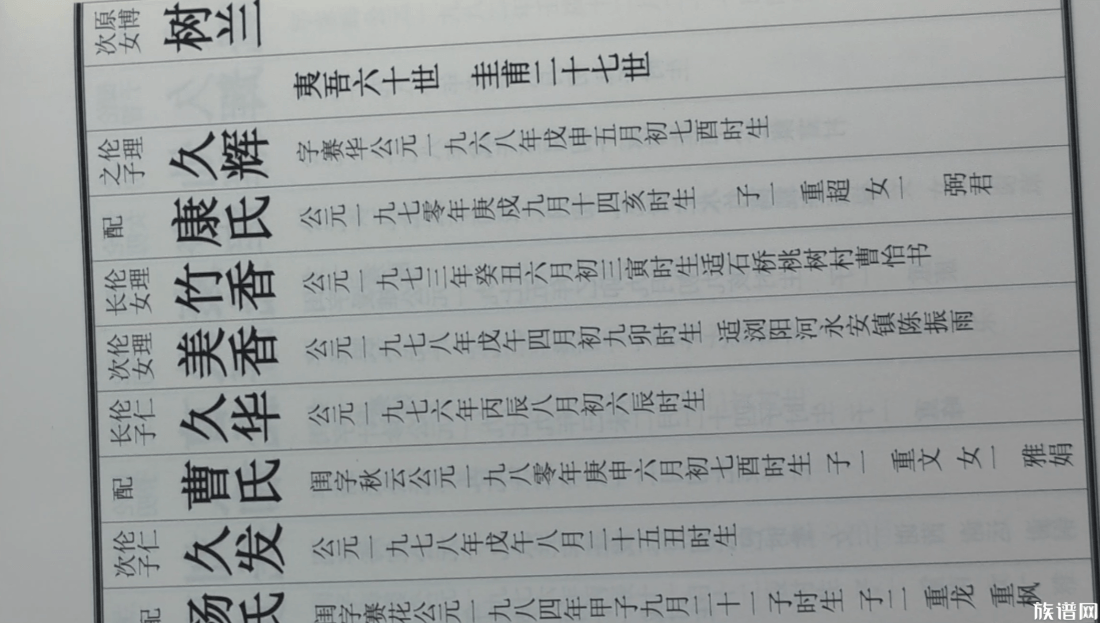 原博次女 树兰
夷吾六十世 圭甫二十七世
伦理之子 久辉 字赛华公元一九六八年戊申五月初七酉时生
配 康氏 公元一九七零年庚戌九月十四亥时生 子一 重超 女一 弼君
伦理长女 竹香 公元一九七三年癸丑六月初三寅时生适石桥桃树村曹怡书
伦理次女 美香 公元一九七八年戊午四月初九卯时生 适浏阳河永安镇陈振雨
伦仁长子 久华 公元一九七六年丙辰八月初六辰时生
配 曹氏 闺字秋云公元一九八零年庚申六月初七酉时生 子一 重文 女一 雅娟
伦仁次子 久发 公元一九七八年戊午八月二十五丑时生
配 汤氏 闺字赛花公元一九八四年甲子九月二十一子时生 子二 重龙 重枫
族谱网